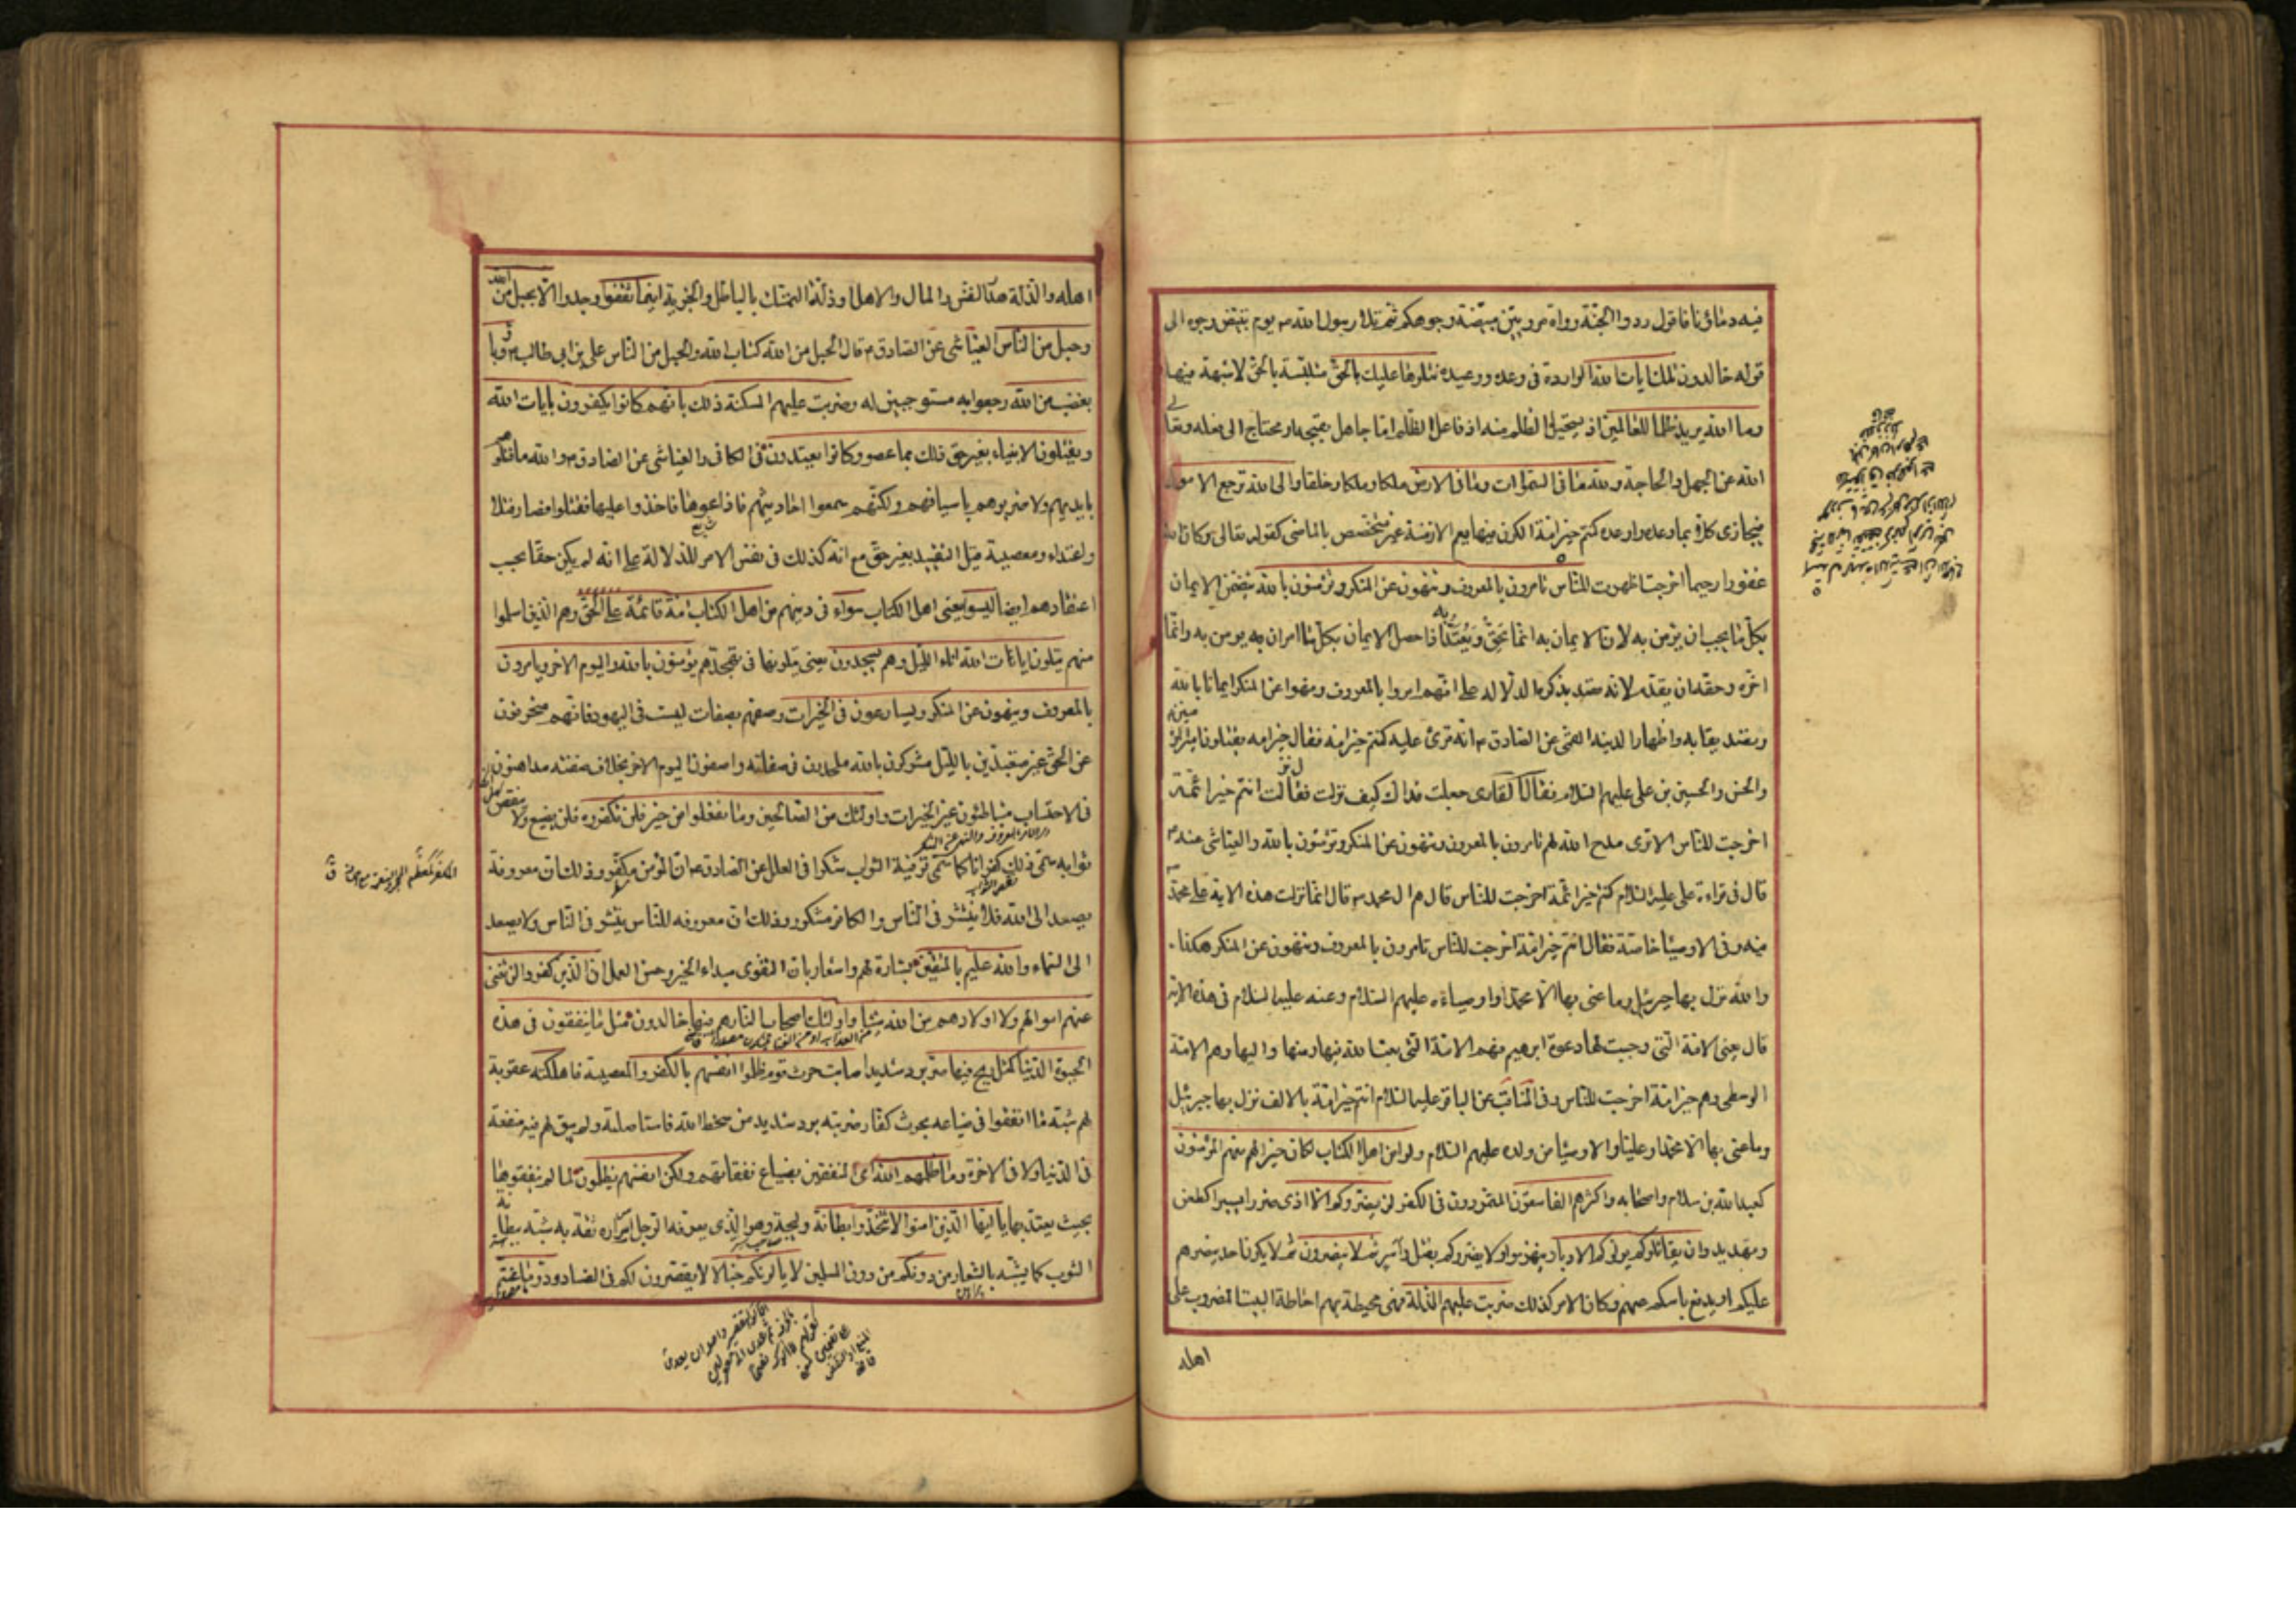 فيه دماؤنا فاقول ردوا الجنة رواة مرويين مبيضة وجوهكم ثم تلا رسول الله ص يوم تبيض وجوه الى
قوله خالدون تلك ايات الله الواردة فى وعده ووعيده نتلوها عليك بالحق متلبسة بالحق لا شبهة فيها
وما الله يريد ظلما للعالمين اذ يستحيل الظلم منه اذ فاعل الظلم اما جاهل بقبحه او محتاج الى فعله وتعالى
الله عن الجهل والحاجة ولله ما فى السموات وما فى الارض ملكا وملكا وخلقا والى الله ترجع الامور
فيجازى كلا بما وعده واوعده كنتم خير امة الكون فيها يعم الازمنة غير متخصص بالماضى كقوله تعالى وكان الله
غفورا رحيما اخرجت اظهرت للناس تامرون بالمعروف وتنهون عن المنكر وتؤمنون بالله يتضمن الايمان
بكل ما يجب ان يؤمن به لان الايمان به انما يحق ويعتد به اذا حصل الايمان بكل ما امر ان يؤمن به وانما
اخره وحقه ان يقدم لانه قصد بذكره الدلالة على انهم امروا بالمعروف ونهوا عن المنكر ايمانا بالله
وتصديقا به واظهارا لدينه القمى عن الصادق ع انه قرئ عليه كنتم خير امة فقال خير امة يقتلون امير المؤمنين
والحسن والحسين بن على عليهم السلام فقال القارى جعلت فداك كيف نزلت فقال نزلت انتم خير ائمة
اخرجت للناس الا ترى مدح الله لهم تامرون بالمعروف وتنهون عن المنكر وتؤمنون بالله والعياشى عنه ع
قال فى قراءة على عليه السلام كنتم خير ائمة اخرجت للناس قال هم ال محمد ص قال انما نزلت هذه الاية على محمد ص
فيه وفى الاوصياء خاصة فقال انتم خير امة اخرجت للناس تامرون بالمعروف وتنهون عن المنكر هكذا
والله نزل بها جبرئيل وما عنى بها الا محمدا واوصياءه عليهم السلام وعنه عليه السلام فى هذه الاية
قال يعنى الامة التى وجبت لها دعوة ابرهيم فهم الامة التى بعث الله فيها ومنها واليها وهم الامة
الوسطى وهم خير امة اخرجت للناس وفى المناقب عن الباقر عليه السلام انتم خير امة بالالف نزل بها جبرئيل
وما عنى بها الا محمدا وعليا والاوصياء من ولده عليهم السلام ولو امن اهل الكتاب لكان خيرا لهم منهم المؤمنون
كعبد الله بن سلام واصحابه واكثرهم الفاسقون المتمردون فى الكفر لن يضروكم الا اذى ضررا يسيرا كطعن
وتهديد وان يقاتلوكم يولوكم الادبار ينهزموا ولا يضروكم بقتل واسر ثم لا ينصرون ثم لا يكون احد ينصرهم
عليكم او يدفع باسكم عنهم وكان الامر كذلك ضربت عليهم الذلة فهى محيطة بهم احاطة البيت المضروب على
اهله
اهله والذلة هدر النفس والمال والاهل او ذلة التمسك بالباطل والجزية اينما ثقفوا وجدوا الا بحبل من الله
وحبل من الناس العياشى عن الصادق ع قال الحبل من الله كتاب الله والحبل من الناس على بن ابى طالب ع وباؤا
بغضب من الله رجعوا به مستوجبين له وضربت عليهم المسكنة ذلك بانهم كانوا يكفرون بايات الله
ويقتلون الانبياء بغير حق ذلك بما عصوا وكانوا يعتدون فى الكافى والعياشى عن الصادق ع والله ما قتلوهم
بايديهم ولا ضربوهم باسيافهم ولكنهم سمعوا احاديثهم فاذاعوها فاخذوا عليها فقتلوا فصار قتلا
واعتداء ومعصية قيل التقييد بغير حق مع انه كذلك فى نفس الامر للدلالة على انه لم يكن حقا بحسب
اعتقادهم ايضا ليسوا يعنى اهل الكتاب سواء فى دينهم من اهل الكتاب امة قائمة على الحق وهم الذين اسلموا
منهم يتلون ايات الله اناء الليل وهم يسجدون يعنى يتلونها فى تهجدهم يؤمنون بالله واليوم الاخر ويامرون
بالمعروف وينهون عن المنكر ويسارعون فى الخيرات وصفهم بصفات ليست فى اليهود فانهم منحرفون
عن الحق غير متعبدين بالليل مشركون بالله ملحدون فى صفاته واصفون اليوم الاخر بخلاف صفته مداهنون
فى الاحتساب متباطئون عن الخيرات واولئك من الصالحين وما تفعلوا من خير فلن تكفروه فلن يضيع ولا ينقص
ثوابه سمى ذلك كفرانا كما سمى توفية الثواب شكرا فى العلل عن الصادق ع ان المؤمن مكفر وذلك ان معروفه
يصعد الى الله فلا ينتشر فى الناس والكافر مشكور وذلك ان معروفه للناس ينتشر فى الناس ولا يصعد
الى السماء والله عليم بالمتقين بشارة لهم واشعار بان التقوى مبداء الخير وحسن العمل ان الذين كفروا لن تغنى
عنهم اموالهم ولا اولادهم من الله شيئا واولئك اصحاب النار هم فيها خالدون مثل ما ينفقون فى هذه
الحيوة الدنيا كمثل ريح فيها صر برد شديد اصابت حرث قوم ظلموا انفسهم بالكفر والمعصية فاهلكته عقوبة
لهم شبه ما انفقوا فى ضياعه بحرث كفار ضربته برد شديد من سخط الله فاستاصلته ولم يبق لهم فيه منفعة
فى الدنيا ولا فى الاخرة وما ظلمهم الله اى المنفقين بضياع نفقاتهم ولكن انفسهم يظلمون لما لم ينفقوها
بحيث يعتد بها يا ايها الذين امنوا لا تتخذوا بطانة وليجة وهو الذى يعرفه الرجل اسراره ثقة به شبه ببطانة
الثوب كما يشبه بالشعار من دونكم من دون المسلمين لا يالونكم خبالا لا يقصرون لكم فى الفساد ودوا ما عنتم